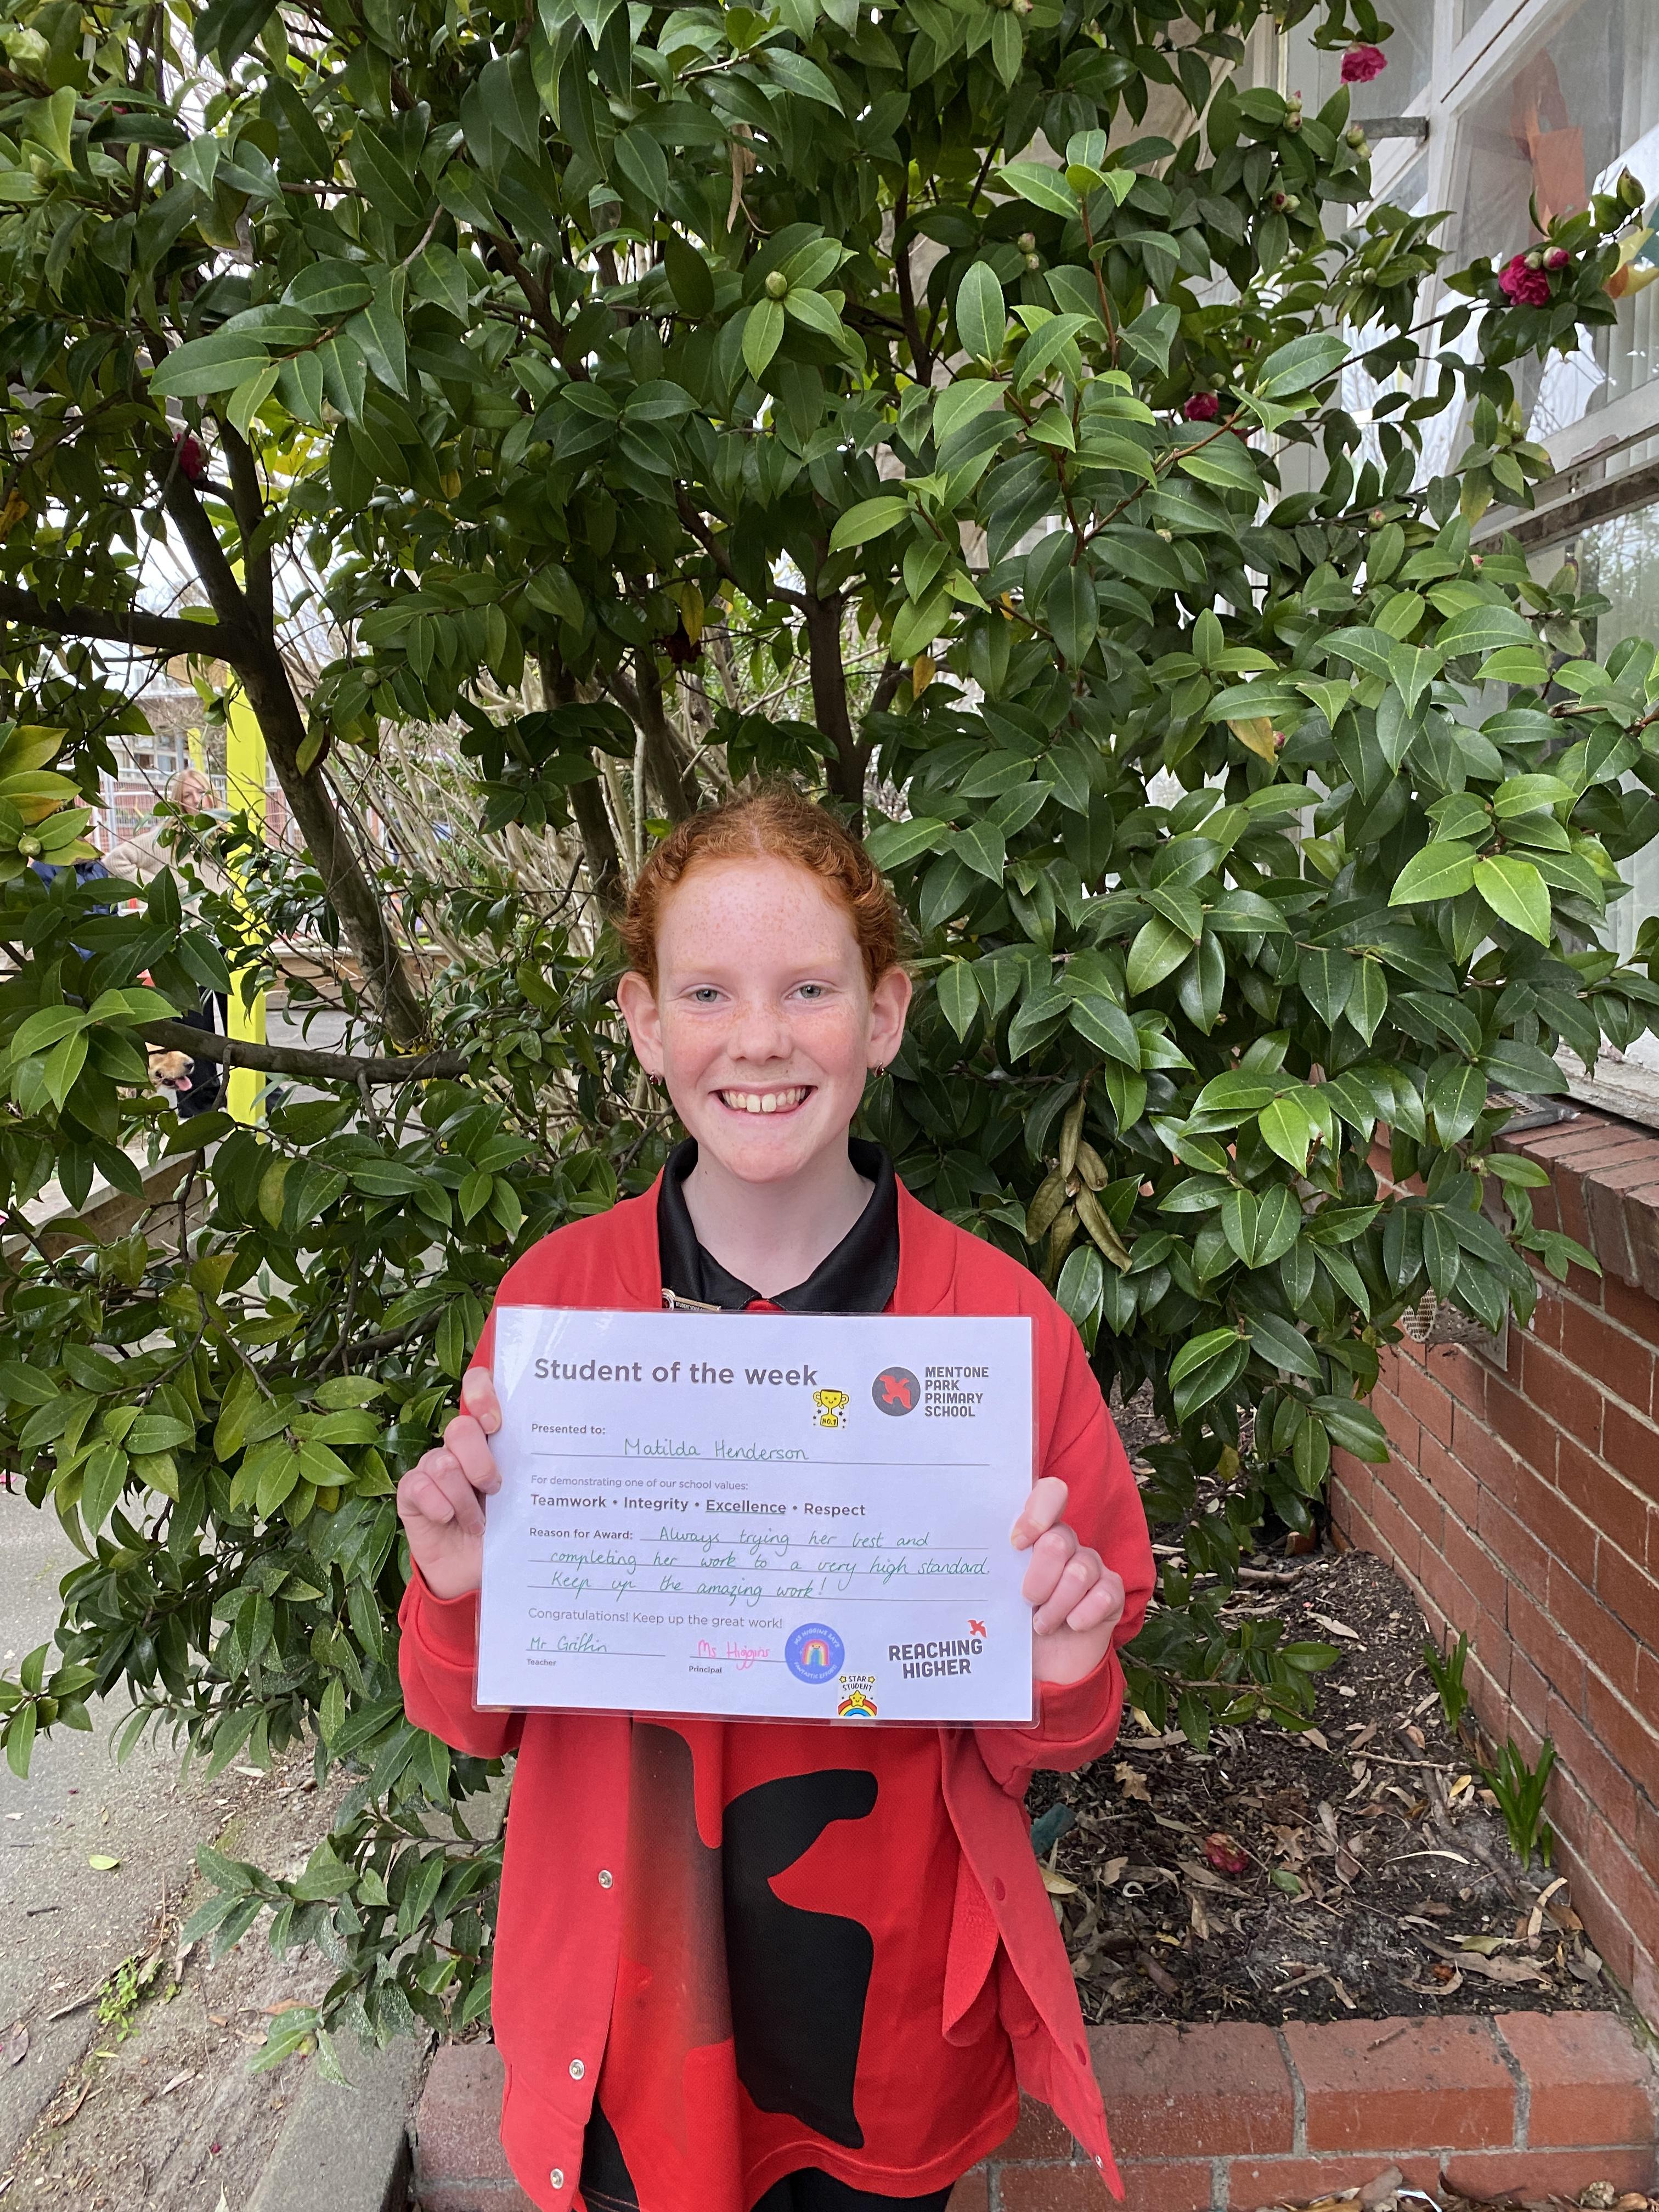 Student of the week
MENTONE
PARK
PRIMARY
SCHOOL
NO.1
Presented to:
Matilda Henderson
For demonstrating one of our school values:
Teamwork • Integrity • Excellence • Respect
Reason for Award: Always trying her best and
completing her work to a very high standard.
Keep up the amazing work!
Congratulations! Keep up the great work!
Mr Griffin
Teacher
Ms Higgins
Principal
MS HIGGINS SAYS
FANTASTIC EFFORT
STAR
STUDENT
REACHING
HIGHER